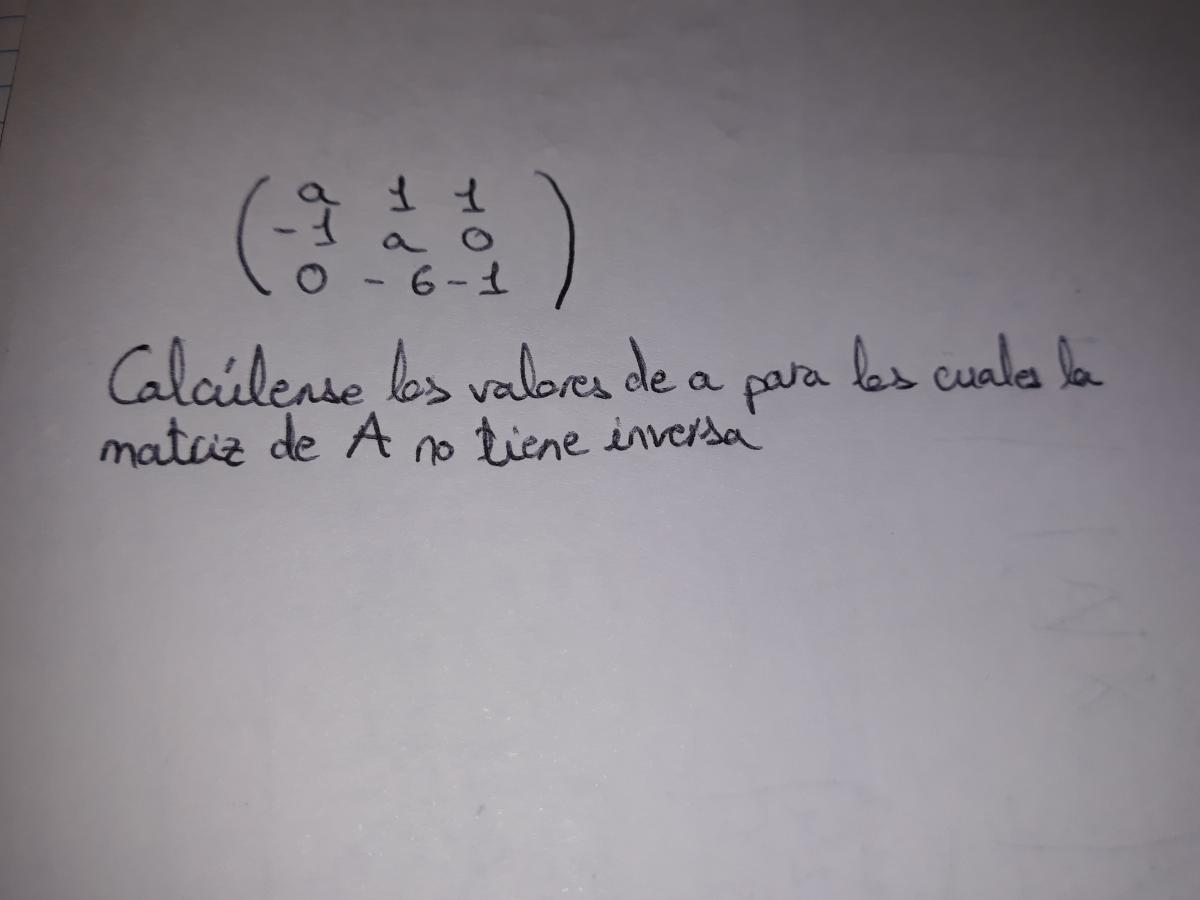 a 1 1
-1 a 0
0 -6 -1
Calcúlense los valores de a para los cuales la
matriz de A no tiene inversa